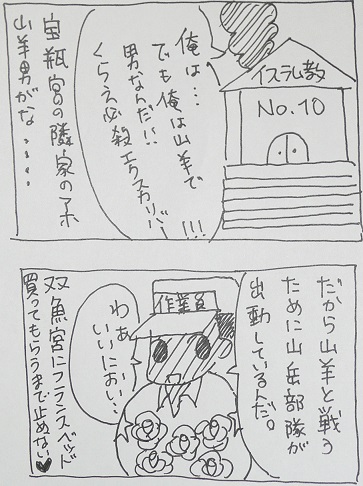 イスラム教
No.10
俺は…
でも俺は山羊で
男なんだ!!
くらえ必殺エクスカリバー
!!!
宝瓶宮の隣家のアホ
山羊男がな…
だから山羊と戦う
ために山岳部隊が
出動しているんだ。
作業員
わぁ…
いいにおい…
双魚宮にフランスベッド
買ってもらうまで止めない♥